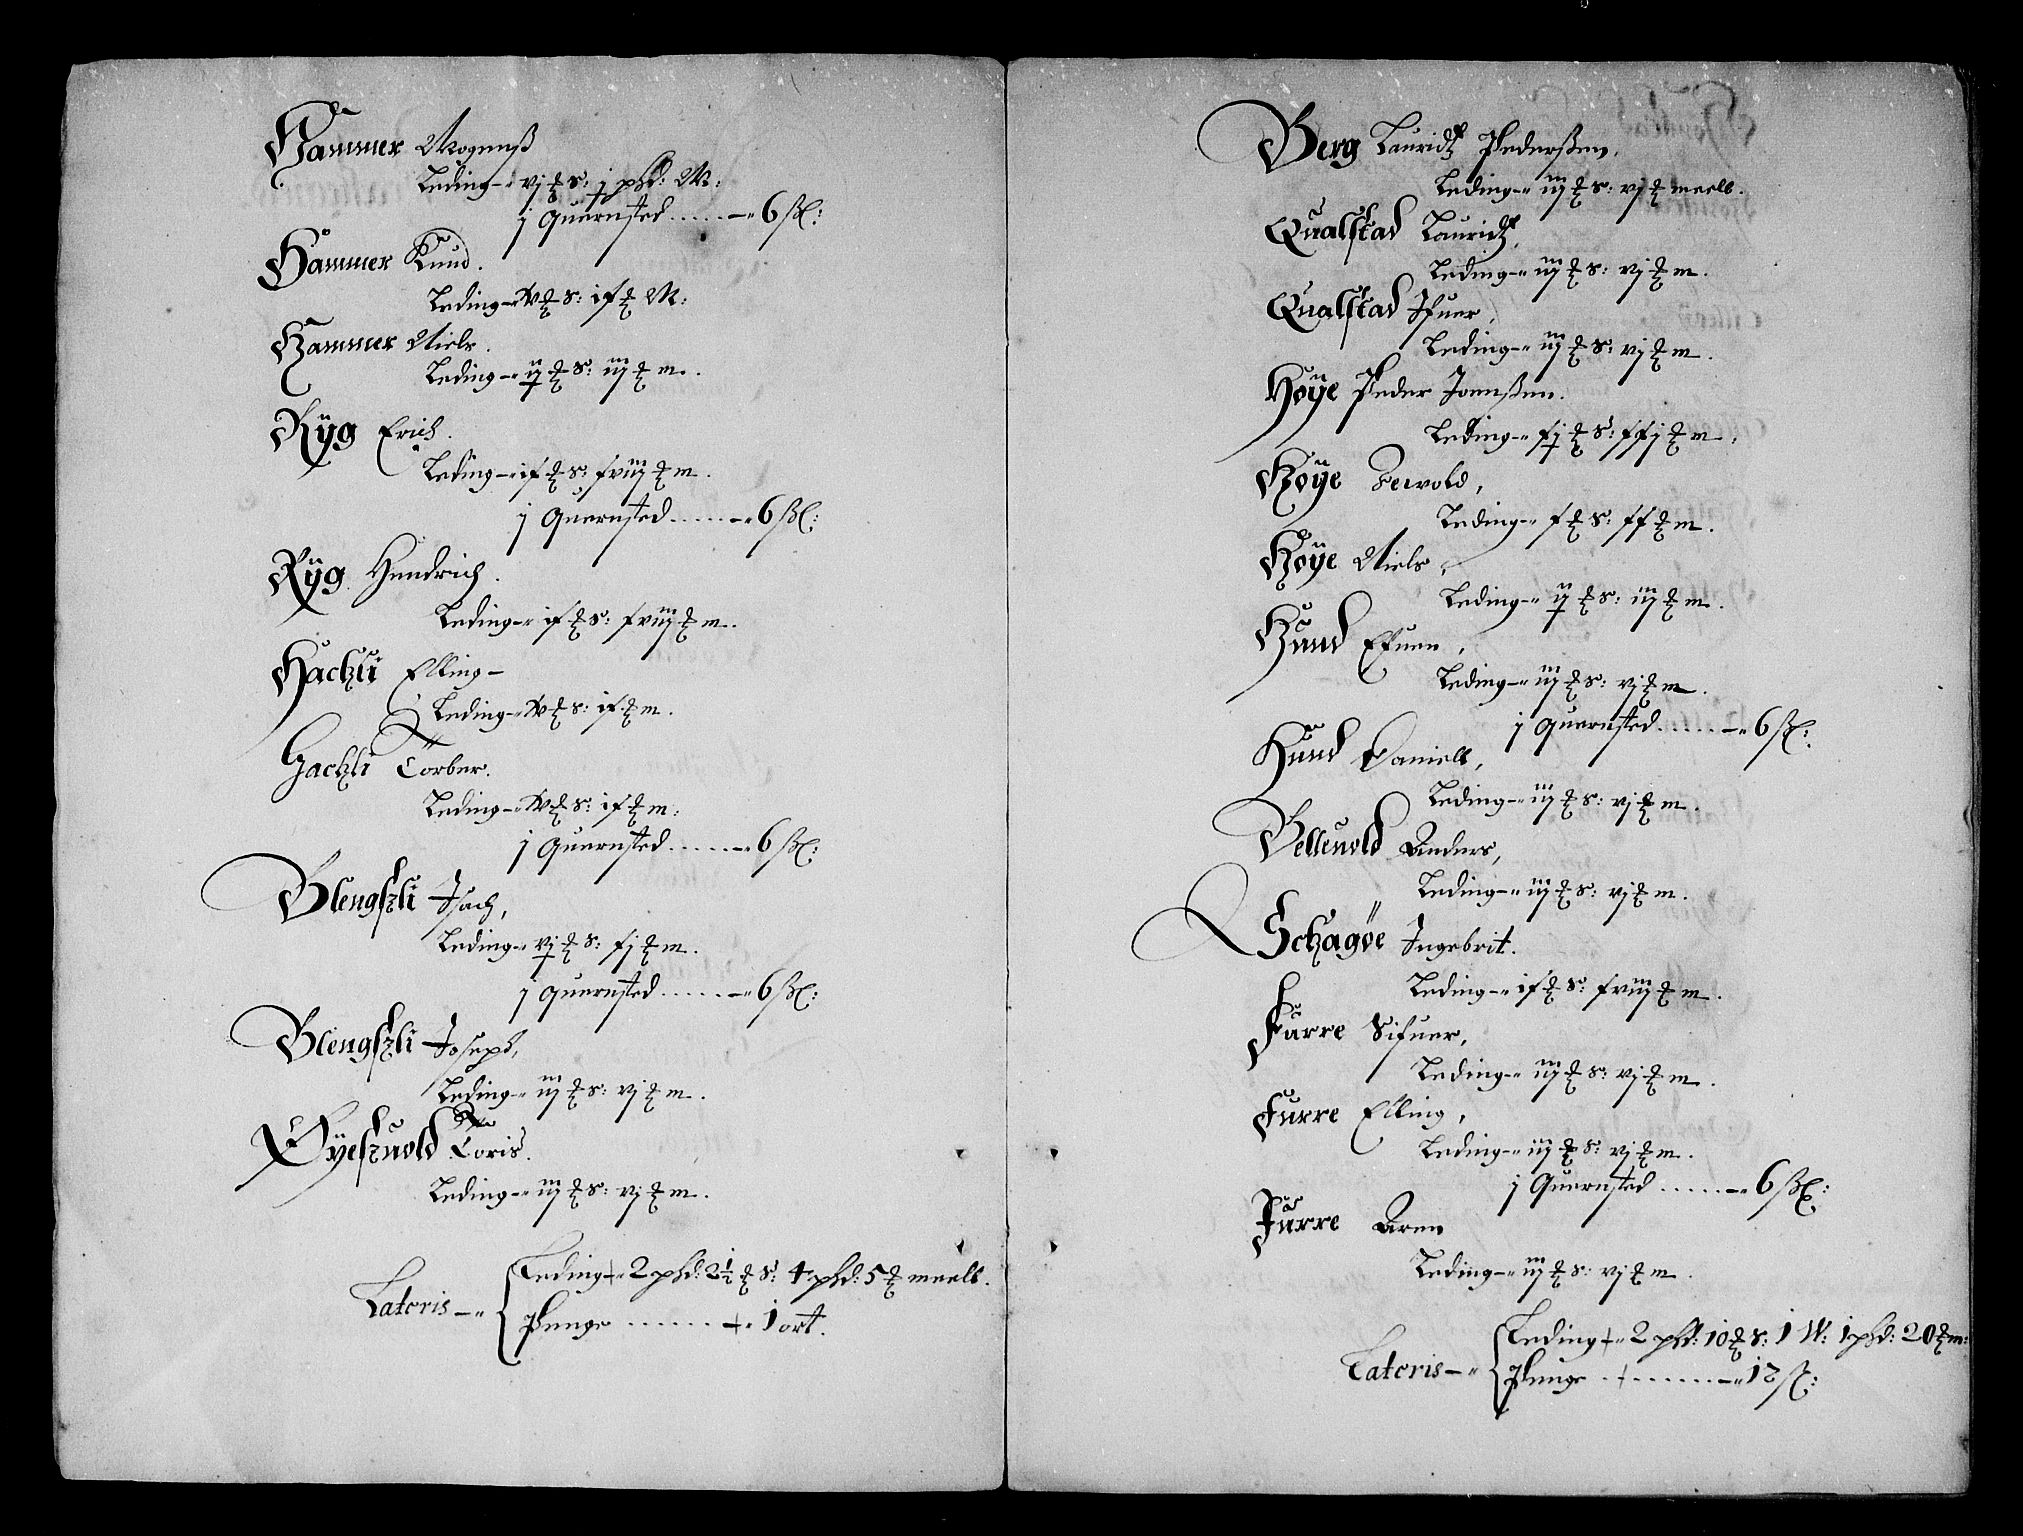 Hammer Mogenß
Leding -" vj ℔ S: j phd: M:
j Quernsted ...... -" 6 ßl:
Hammer Knud.
Leding -" ℔ S: ix ℔ M:
Hammer Niels.
Leding -" ij ℔ S: iiij ℔ m.
Ryg Erich.
Leding -" ix ℔ S: xviij ℔ m.
j Quernsted ...... -" 6 ßl:
Ryg Hendrich.
Leding -" ix ℔ S: xviij ℔ m.
Hackli Elling -
Leding -" ℔ S: ix ℔ m.
Hackli Torber.
Leding -" ℔ S: ix ℔ m:
j Quernsted ...... -" 6 ßl:
Blengszli Isach,
Leding -" vj ℔ S: xj ℔ m.
j Quernsted ...... -" 6 ßl:
Blengszli Joseph,
Leding -" iij ℔ S: vj ℔ m.
Øyeszuold Toris.
Leding -" iij ℔ S: vj ℔ m.
Leding -" 2 phd: 2½ ℔ S: 4 phd: 5 ℔ meell.
Lateris -"
Penge ...... -" 1 ort.
Berg Lauridtz Pederßen,
Leding -" iij ℔ S: vj ℔ meell.
Qualstad Lauridtz,
Leding -" iij ℔ S: vj ℔ m.
Qualstad Ifuer,
Leding -" iij ℔ S: vj ℔ m.
Høye Peder Joenßen.
Leding -" xj ℔ S: xxj ℔ m.
Høye Tewold,
Leding -" x ℔ S: xx ℔ m.
Høye Niels,
Leding -" ij ℔ S: iiij ℔ m.
Hund Efuen,
Leding -" iij ℔ S: vj ℔ m.
j Quernsted ...... -" 6 ßl:
Hund Daniell,
Leding -" iij ℔ S: vj ℔ m.
Belleuold Anders,
Leding -" iij ℔ S: vj ℔ m.
Schagøe Ingebrit.
Leding -" ix ℔ S: xviij ℔ m.
Furre Sifuer,
Leding -" iij ℔ S: vj ℔ m.
Furre Elling,
Leding -" iij ℔ S: vj ℔ m.
j Quernsted ...... -" 6 ßl:
Furre Aren
Leding -" iij ℔ S: vj ℔ m.
Leding -" 2 phd: 10 ℔ S: 1 W: 1 phd: 20 ℔ m:
Lateris -"
Penge ...... -" 12 ßl: